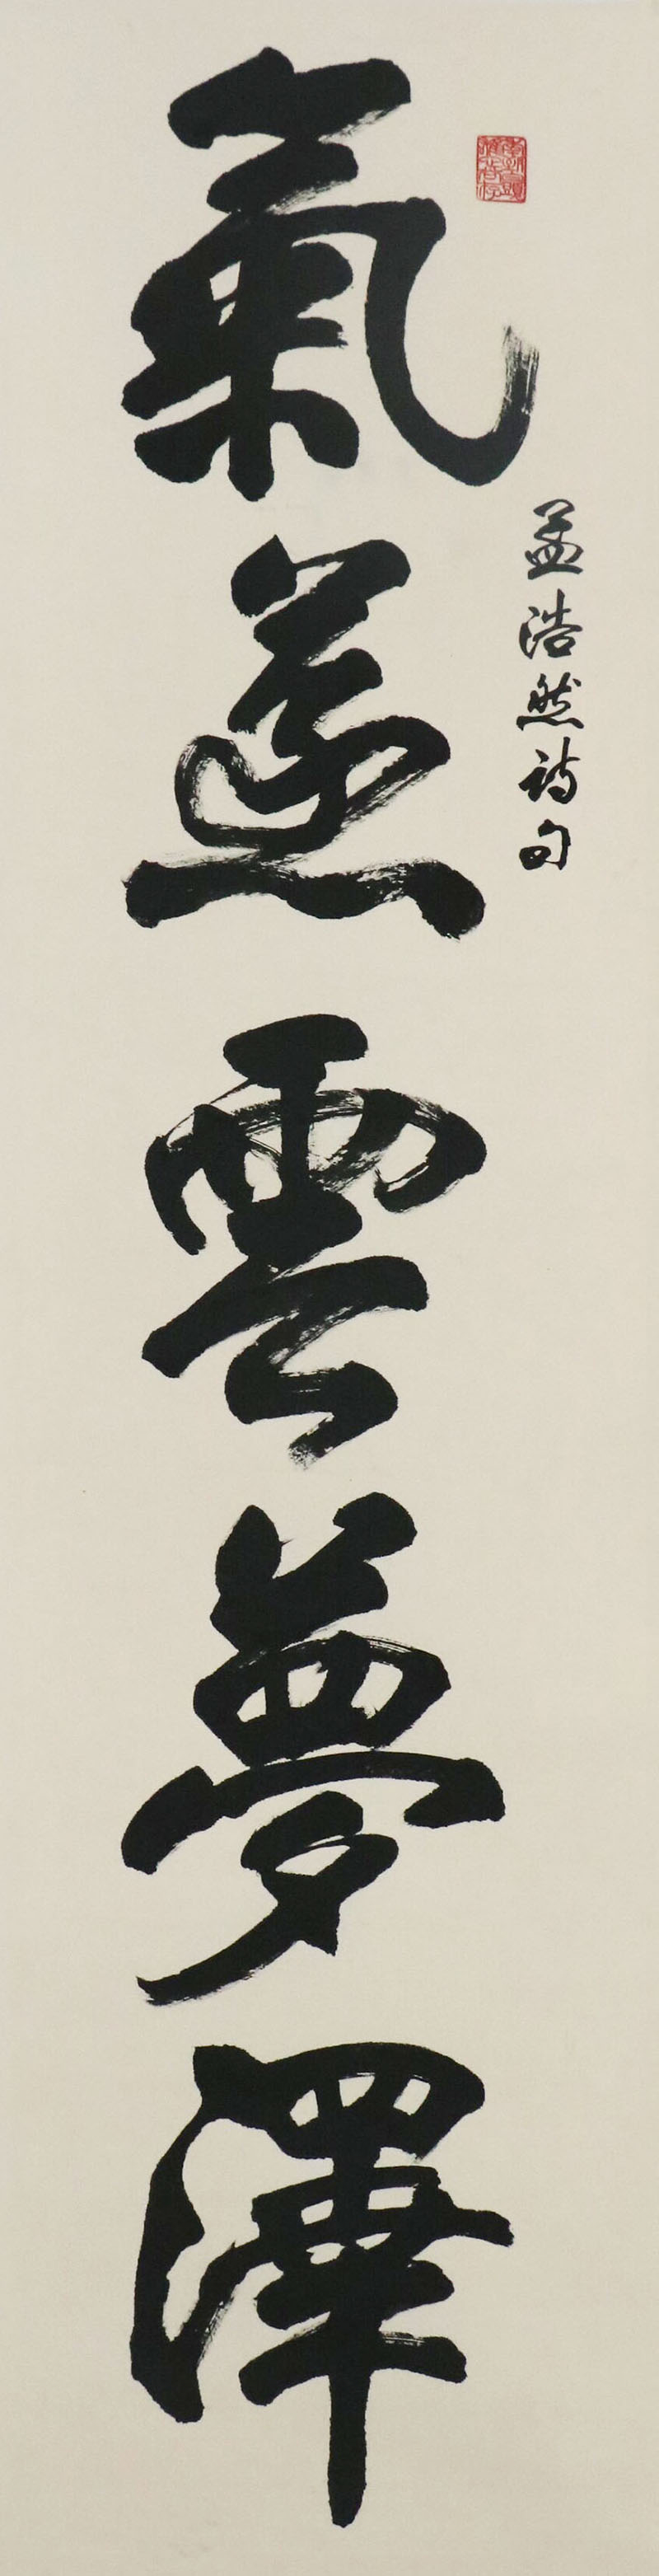 孟浩然詩句
氣蒸雲夢澤